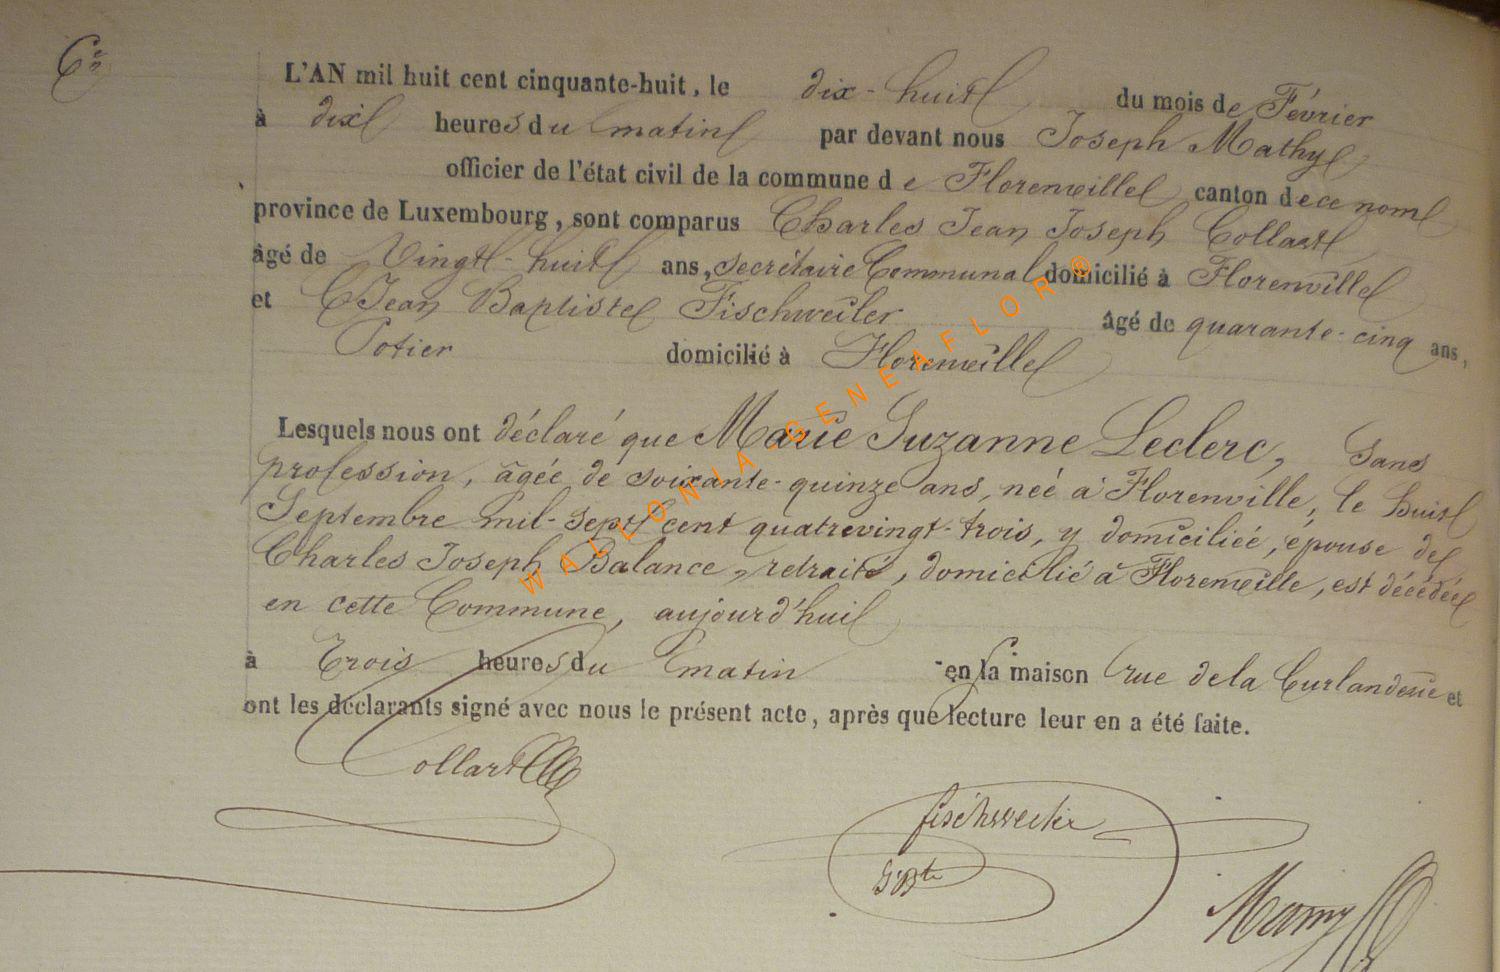 Cen
L'AN mil huit cent cinquante-huit, le dix-huit du mois de Février
à dix heures du matin par devant nous Joseph Mathy
officier de l'état civil de la commune de Florenville canton de ce nom
province de Luxembourg, sont comparus Charles Jean Joseph Collart
âgé de Vingt-huit ans, secrétaire Communal domicilié à Florenville
et Jean Baptiste Fischweiler âgé de quarante-cinq ans,
Potier domicilié à Florenville
Lesquels nous ont déclaré que Marie Suzanne Leclerc, Sans
profession, âgée de soixante-quinze ans, née à Florenville, le huit
Septembre mil-sept cent quatrevingt-trois, y domiciliée, épouse de
Charles Joseph Balance, retraité, domicilié à Florenville, est décédée
en cette Commune, aujourd'hui
à Trois heures du matin en sa maison rue de la Curlanderie et
ont les déclarants signé avec nous le présent acte, après que lecture leur en a été faite.
Collart
fischweiler
JBte
WALLONIA GENEAFLOR ®